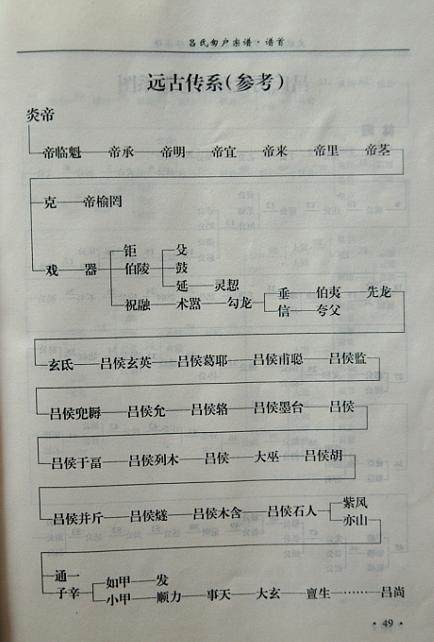 吕氏旬户宗谱·谱首
远古传系(参考)
炎帝
帝临魁 帝承 帝明 帝宜 帝来 帝里 帝茎
克 帝榆罔
钜 殳
戏 器 伯陵 鼓
延 灵恝
祝融 术嚣 勾龙 垂 伯夷 先龙
信 夸父
玄氐 吕侯玄英 吕侯葛耶 吕侯甫聪 吕侯监
吕侯兜耨 吕侯允 吕侯辂 吕侯墨台 吕侯
吕侯于冨 吕侯列木 吕侯 大巫 吕侯胡
吕侯并斤 吕侯燧 吕侯木含 吕侯石人 紫风
亦山
通一
子辛 如甲 发
小甲 顺力 事天 大玄 亶生………吕尚
·49·